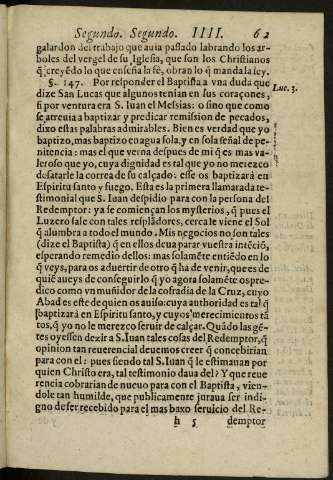 Segundo. Segundo. IIII. 62
galardon del trabajo que auia passado labrando los ar-
boles del vergel de su Iglesia, que son los Christianos
q̃ creyẽdo lo que enseña la fè, obran lo q̃ manda la ley.
§. 147. Por responder el Baptista a vna duda que
dize San Lucas que algunos tenian en sus coraçones,
Luc. 3.
si por ventura era S. Iuan el Messias: o sino que como
se atreuia a baptizar y predicar remission de pecados,
dixo estas palabras admirables. Bien es verdad que yo
baptizo, mas baptizo en agua sola, y en sola señal de pe-
nitencia: mas el que verna despues de mi q̃ es mas va-
leroso que yo, cuya dignidad es tal que yo no merezco
desatarle la correa de su calçado: esse os baptizarà en
Espiritu santo y fuego. Esta es la primera llamarada tes-
timonial que S. Iuan despidio para con la persona del
Redemptor: ya se comiençan los mysterios, q̃ pues el
Luzero sale con tales resplãdores, cerca le viene el Sol
q̃ alumbra a todo el mundo. Mis negocios no son tales
(dize el Baptista) q̃ en ellos deua parar vuestra intẽciõ,
esperando remedio dellos: mas solamẽte entiẽdo en lo
q̃ veys, para os aduertir de otro q̃ ha de venir, que es de
quiẽ aueys de conseguir lo q̃ yo agora solamẽte os pre-
dico como vn muñidor de la cofradia de la Cruz, cuyo
Abad es este de quien os auiso: cuya authoridad es tal q̃
baptizarà en Espiritu santo, y cuyos merecimientos tã-
tos, q̃ yo no le merezco seruir de calçar. Quãdo las gẽ-
tes oyessen dezir a S. Iuan tales cosas del Redemptor, q̃
opinion tan reuerencial deuemos creer q̃ concebirian
para con el: pues siendo tal S. Iuan q̃ le estimauan por
quien Christo era, tal testimonio daua del? Y que reue
rencia cobrarian de nueuo para con el Baptista, vien-
dole tan humilde, que publicamente juraua ser indi-
gno de ser recebido para el mas baxo seruicio del Re-
h 5 demptor